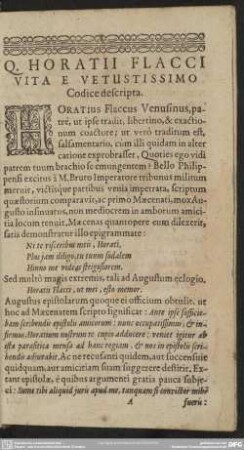 Q. HORATII FLACCI
VITA E VETUSTISSIMO
Codice descripta.
HORATIUS Flaccus Venusinus, pa-
tré, ut ipse tradit, libertino, & exactio-
num coactore; ut verò traditum est,
salsamentario, cum illi quidam in alter
catione exprobrasset, Quoties ego vidi
patrem tuum brachio se emungentem? Bello Philip-
pensi excitus à M. Bruto Imperatore tribunus militum
meruit, victisque partibus venia impetrata, scriptum
quæstorium comparavit, ac primo Mæcenati, mox Au-
gusto insinuatus, non mediocrem in amborum amici-
tia locum tenuit. Mæcenas quantopere eum dilexerit,
satis demonstratur illo epigrammate:
Ni te visceribus meis, Horati,
Plus jam diligo, tu tuum sodalem
Hinno me videas strigosiorem.
Sed multò magis extremis, tali ad Augustum eclogio,
Horatii Flacci, ut mei, esto memor.
Augustus epistolarum quoque ei officium obtulit. ut
hoc ad Mæcenatem scripto significat: Ante ipse suffici-
bam scribendis epistolis amicorum: nunc occupatissimus, & in-
firmus, Horatium nostrum te cupio adducere: veniet igitur ab
ista parasitica mensa ad hanc regiam, & nos in epistolis scri-
bendis adjuvabit. Ac ne recusanti quidem, aut succensuit
quidquam, aut amicitiam suam suggerere desiit. Ex-
tant epistolæ, è quibus argumenti gratia pauca subje-
ci: Sume tibi aliquid juris apud me, tanquam si convictor mihi
A fueris: